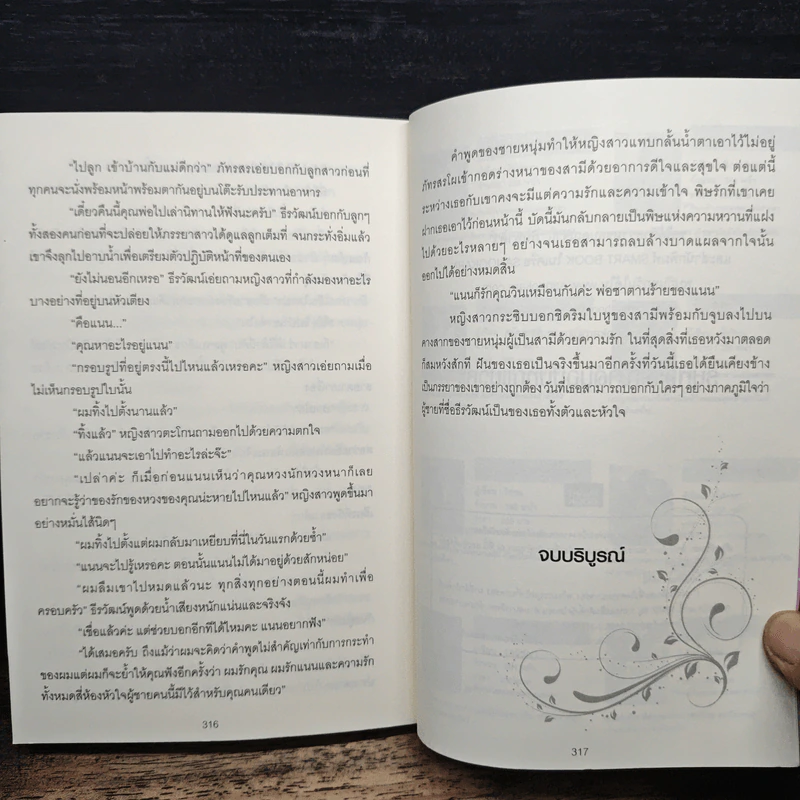 “ไปลูก เข้าบ้านกับแม่ดีกว่า” ภัทรสรเอ่ยบอกกับลูกสาวก่อนที่
ทุกคนจะนั่งพร้อมหน้าพร้อมตากันอยู่บนโต๊ะรับประทานอาหาร
“เดี๋ยวคืนนี้คุณพ่อไปเล่านิทานให้ฟังนะครับ” ธีรวัฒน์บอกกับลูกๆ
ทั้งสองคนก่อนที่จะปล่อยให้ภรรยาสาวได้ดูแลลูกเต็มที่ จนกระทั่งอิ่มแล้ว
เขาจึงลุกไปอาบน้ำเพื่อเตรียมตัวปฏิบัติหน้าที่ของตนเอง
“ยังไม่นอนอีกเหรอ” ธีรวัฒน์เอ่ยถามหญิงสาวที่กำลังมองหาอะไร
บางอย่างที่อยู่บนหัวเตียง
“คือแนน...”
“คุณหาอะไรอยู่แนน”
“กรอบรูปที่อยู่ตรงนี้ไปไหนแล้วเหรอคะ” หญิงสาวเอ่ยถามเมื่อ
ไม่เห็นกรอบรูปใบนั้น
“ผมทิ้งไปตั้งนานแล้ว”
“ทิ้งแล้ว” หญิงสาวตะโกนถามออกไปด้วยความตกใจ
“แล้วแนนจะเอาไปทำอะไรล่ะจ๊ะ”
“เปล่าค่ะ ก็เมื่อก่อนแนนเห็นว่าคุณหวงนักหวงหนาก็เลย
อยากจะรู้ว่าของรักของหวงของคุณน่ะหายไปไหนแล้ว” หญิงสาวพูดขึ้นมา
อย่างหมั่นไส้นิดๆ
“ผมทิ้งไปตั้งแต่ผมกลับมาเหยียบที่นี่ในวันแรกด้วยซ้ำ”
“แนนจะไปรู้เหรอคะ ตอนนั้นแนนไม่ได้มาอยู่ด้วยสักหน่อย”
“ผมลืมเขาไปหมดแล้วนะ ทุกสิ่งทุกอย่างตอนนี้ผมทำเพื่อ
ครอบครัว” ธีรวัฒน์พูดด้วยน้ำเสียงหนักแน่นและจริงจัง
“เชื่อแล้วค่ะ แต่ช่วยบอกอีกทีได้ไหมคะ แนนอยากฟัง”
“ได้เสมอครับ ถึงแม้ว่าผมจะคิดว่าคำพูดไม่สำคัญเท่ากับการกระทำ
ของผมแต่ผมก็จะย้ำให้คุณฟังอีกครั้งว่า ผมรักคุณ ผมรักแนนและความรัก
ทั้งหมดสี่ห้องหัวใจผู้ชายคนนี้มีไว้สำหรับคุณคนเดียว”
316
คำพูดของชายหนุ่มทำให้หญิงสาวแทบกลั้นน้ำตาเอาไว้ไม่อยู่
ภัทรสรโผเข้ากอดร่างหนาของสามีด้วยอาการดีใจและสุขใจ ต่อแต่นี้
ระหว่างเธอกับเขาคงจะมีแต่ความรักและความเข้าใจ พิษรักที่เขาเคย
ฝากเธอเอาไว้ก่อนหน้านี้ บัดนี้มันกลับกลายเป็นพิษแห่งความหวานที่แฝง
ไปด้วยอะไรหลายๆ อย่างจนเธอสามารถลบล้างบาดแผลจากใจนั้น
ออกไปได้อย่างหมดสิ้น
“แนนก็รักคุณวินเหมือนกันค่ะ พ่อซาตานร้ายของแนน”
หญิงสาวกระซิบบอกชิดริมใบหูของสามีพร้อมกับจูบลงไปบน
คางสากของชายหนุ่มผู้เป็นสามีด้วยความรัก ในที่สุดสิ่งที่เธอหวังมาตลอด
ก็สมหวังสักที ฝันของเธอเป็นจริงขึ้นมาอีกครั้งที่วันนี้เธอได้ยืนเคียงข้าง
เป็นภรรยาของเขาอย่างถูกต้อง วันที่เธอสามารถบอกกับใครๆ อย่างภาคภูมิใจว่า
ผู้ชายที่ชื่อธีรวัฒน์เป็นของเธอทั้งตัวและหัวใจ
จบบริบูรณ์
317